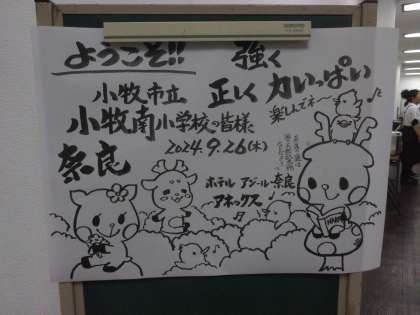 ようこそ!!
小牧市立
小牧南小学校の皆様
2024.9.26(木)
奈良
強く
正しく
力いっぱい
楽しんでネ〜
ホテル アジール・奈良
アネックス